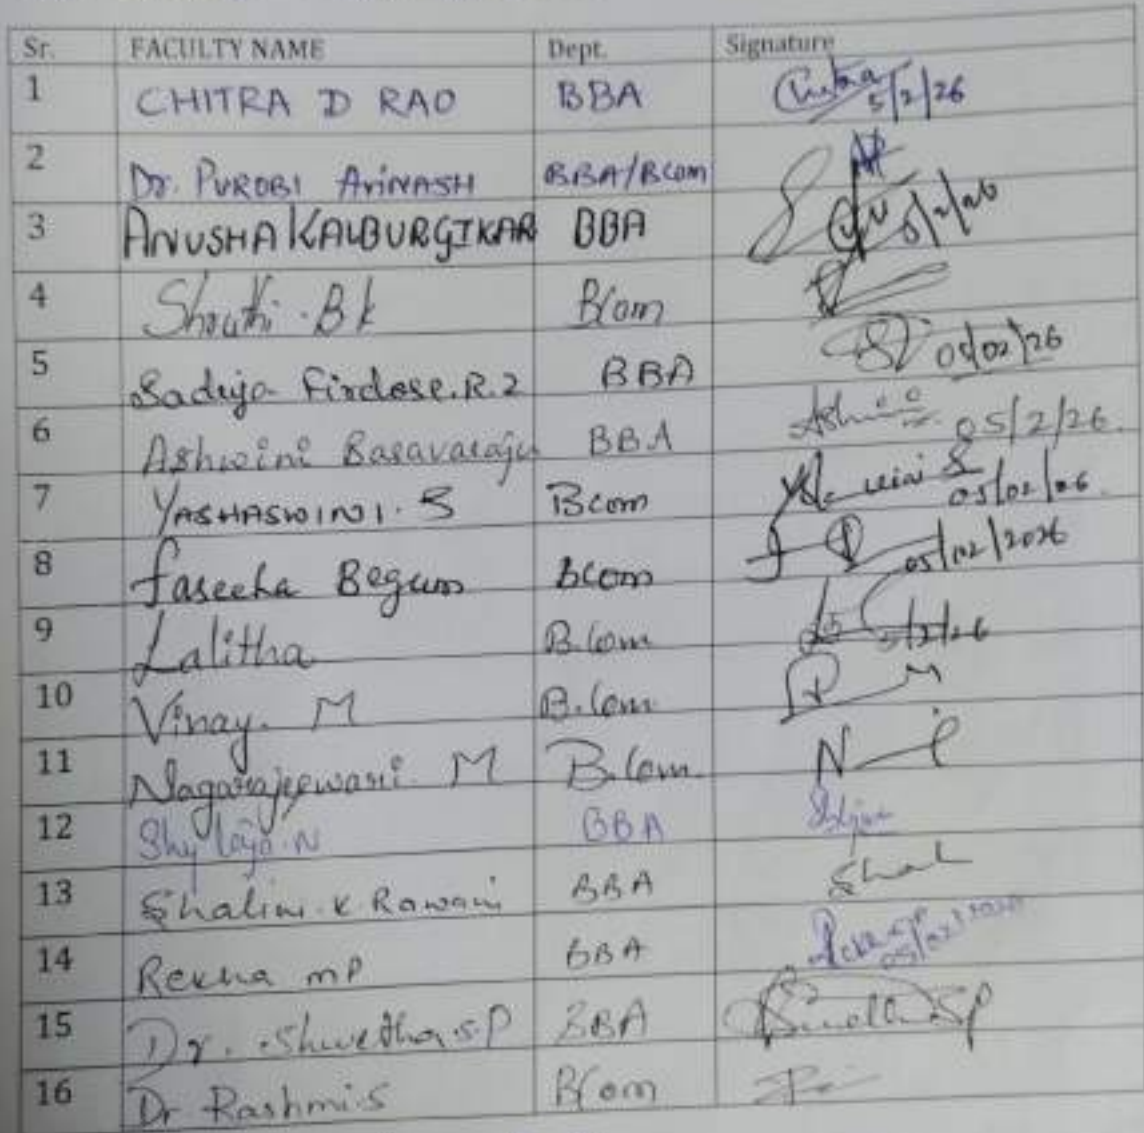 Sr. FACULTY NAME Dept. Signature
1 CHITRA D RAO BBA Chitra 5/2/26
2 Dr. PUROBI AVINASH BBA/BCom
3 ANUSHA KALBURGIKAR BBA 5/2/26
4 Shruthi . B k BCom
5 Sadiya Firdose.R.Z BBA 05/02/26
6 Ashwini Basavaraju BBA Ashwini 05/2/26
7 YASHASWINI. S Bcom 05/02/26
8 Faseeha Begum BCom 05/02/2026
9 Lalitha B.Com 5/2/26
10 Vinay. M B.Com
11 Nagarajeswari. M B.Com
12 Shylaja.N BBA
13 Shalini.K.Rawani BBA Shal
14 Rekha MP BBA 05/02/2026
15 Dr. Shwetha.S.P BBA
16 Dr Rashmi.S BCom